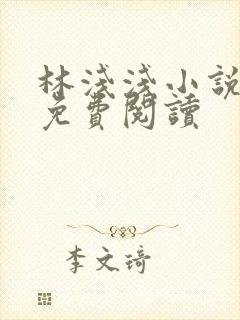 林淺淺小說
免費閱讀
李文琦